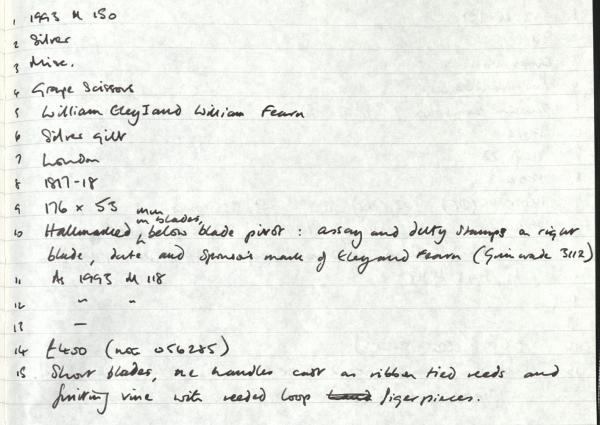 1 1993 M 150
2 Silver
3 Misc.
4 Grape Scissors
5 William Eley I and William Fearn
6 Silver gilt
7 London
8 1817-18
9 176 x 53 mm
10 Hallmarked, on blades, below blade pivot : assay and duty stamps on right
blade, date and Sponsor's mark of Eley and Fearn (Grimwade 3112)
11 As 1993 M 118
12 " "
13 —
14 £400 (inc 056285)
15 Short blades, the handles cast as ribbon tied reeds and
fruiting vine with reeded loop figerpieces.